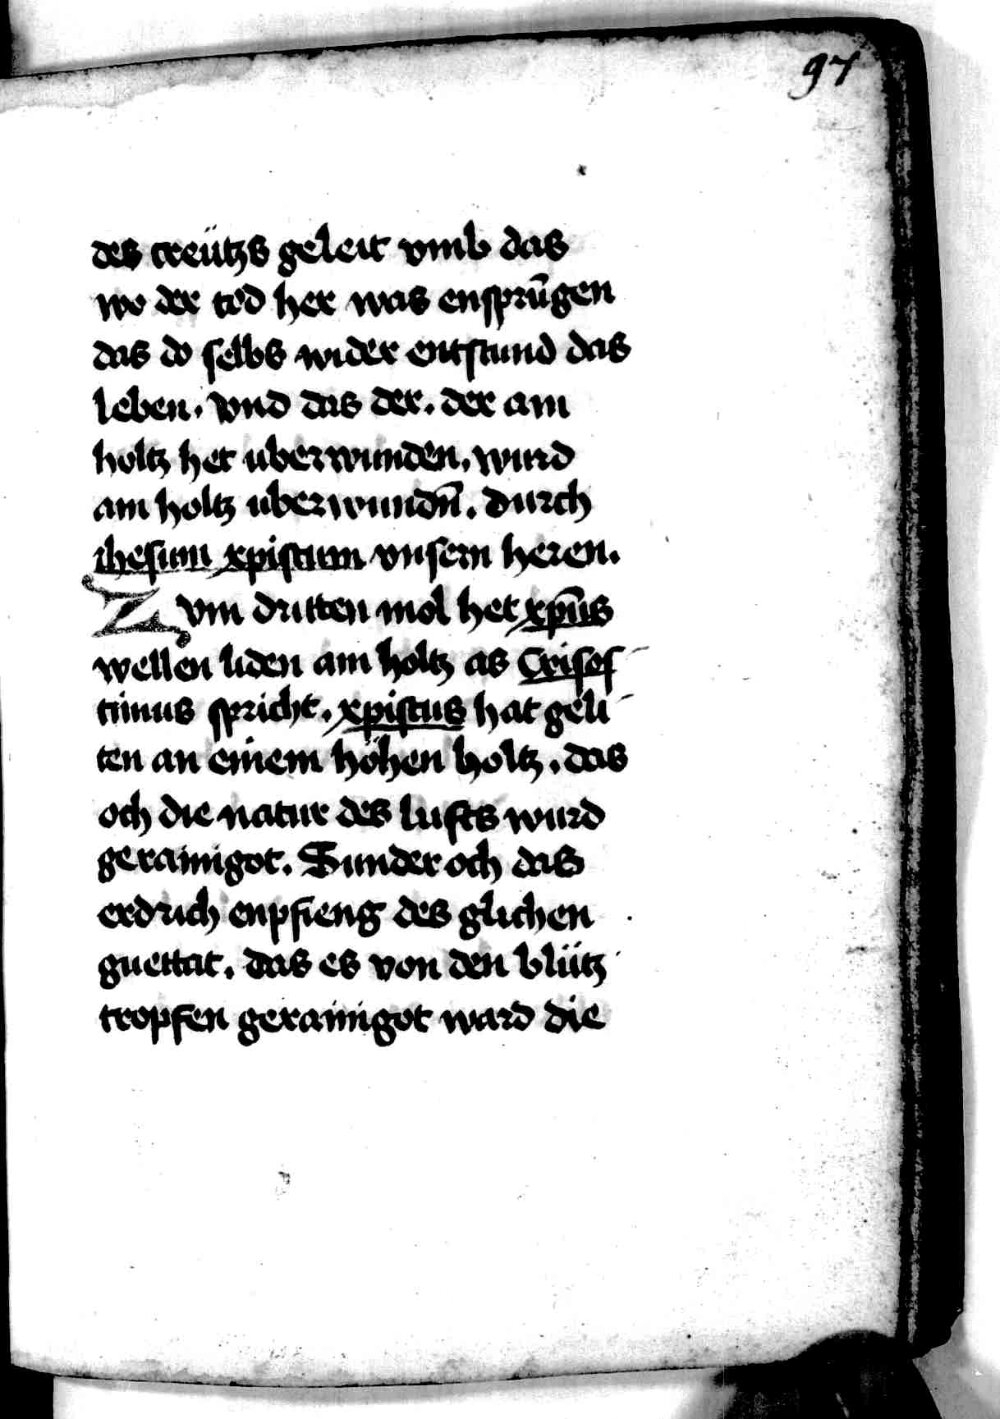 97
des creützs geleit vmb das
wo der tod her was ensprūgen
das do selbs wider entstund das
leben. vnd das der. der am
holtz het uberwunden. wurd
am holtz uberwundn̄. durch
ihesum xpistum vnsern heren.
Zvm dritten mol het xpūs
wellen liden am holtz as Crisos
timus spricht. xpistus hat geli
ten an einem höhen holtz. das
och die natur des lufts wurd
gerainigot. Sunder och das
erdrich enpfieng des glichen
guettat. das es von den blütz
tropfen gerainigot ward die